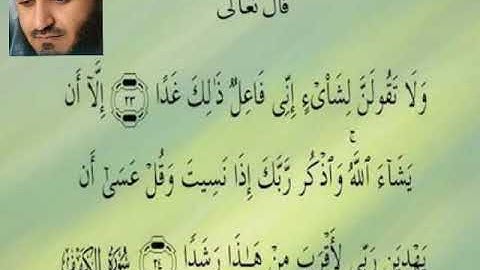 قال تعالى
وَلَا تَقُولَنَّ لِشَا۟ىْءٍ إِنِّى فَاعِلٌ ذَٰلِكَ غَدًا ٢٣ إِلَّآ أَن
يَشَآءَ ٱللَّهُ ۚ وَٱذْكُر رَّبَّكَ إِذَا نَسِيتَ وَقُلْ عَسَىٰٓ أَن
يَهْدِيَنِ رَبِّى لِأَقْرَبَ مِنْ هَـٰذَا رَشَدًا ٢٤ سُورَةُ الكَهْفِ